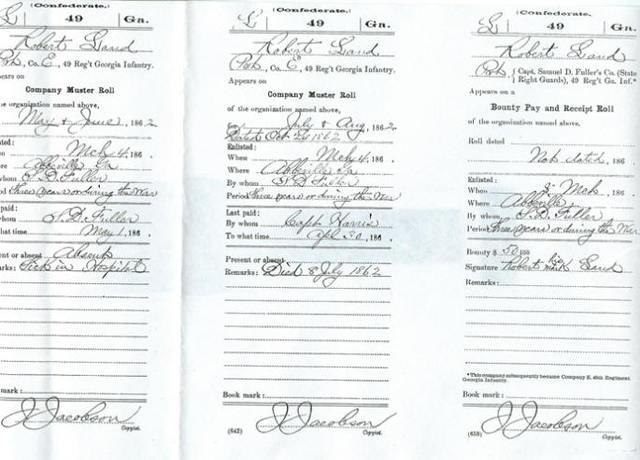 (Confederate.)
L | 49 | Ga.
Robert Land
Pvt, Co. E, 49 Reg't Georgia Infantry.
Appears on
Company Muster Roll
of the organization named above,
May & June, 186 2
Enlisted:
When Mch 4, 186 .
Where Abbeville Ga
By whom S. D. Fuller
Period three years or during the War
Last paid:
By whom S. D. Fuller
To what time May 1, 186 .
Present or absent Absent
Remarks: Sick in Hospital
Book mark:
J Jacobson
Copyist.
(Confederate.)
L | 49 | Ga.
Robert Land
Pvt, Co. E, 49 Reg't Georgia Infantry.
Appears on
Company Muster Roll
of the organization named above,
for July & Aug, 186 2.
Dated Oct. 26 1862
Enlisted:
When Mch 4, 186 .
Where Abbeville Ga
By whom S. D. Fuller
Period three years or during the War
Last paid:
By whom Capt Harris
To what time Apl 30, 186 .
Present or absent
Remarks: Died 8 July 1862
Book mark:
J Jacobson
(642) Copyist.
(Confederate.)
L | 49 | Ga.
Robert Land
Pvt { Capt. Samuel D. Fuller's Co. (State Right Guards), 49 Reg't Ga. Inf.*
Appears on a
Bounty Pay and Receipt Roll
of the organization named above.
Roll dated
Not dated, 186 .
Enlisted:
When 4 Mch, 186 .
Where Abbeville
By whom S. D. Fuller
Period three years or during the War
Bounty $ 50
Signature Robert his mark Land
Remarks:
*This company subsequently became Company E, 49th Regiment Georgia Infantry.
Book mark:
J Jacobson
Copyist.